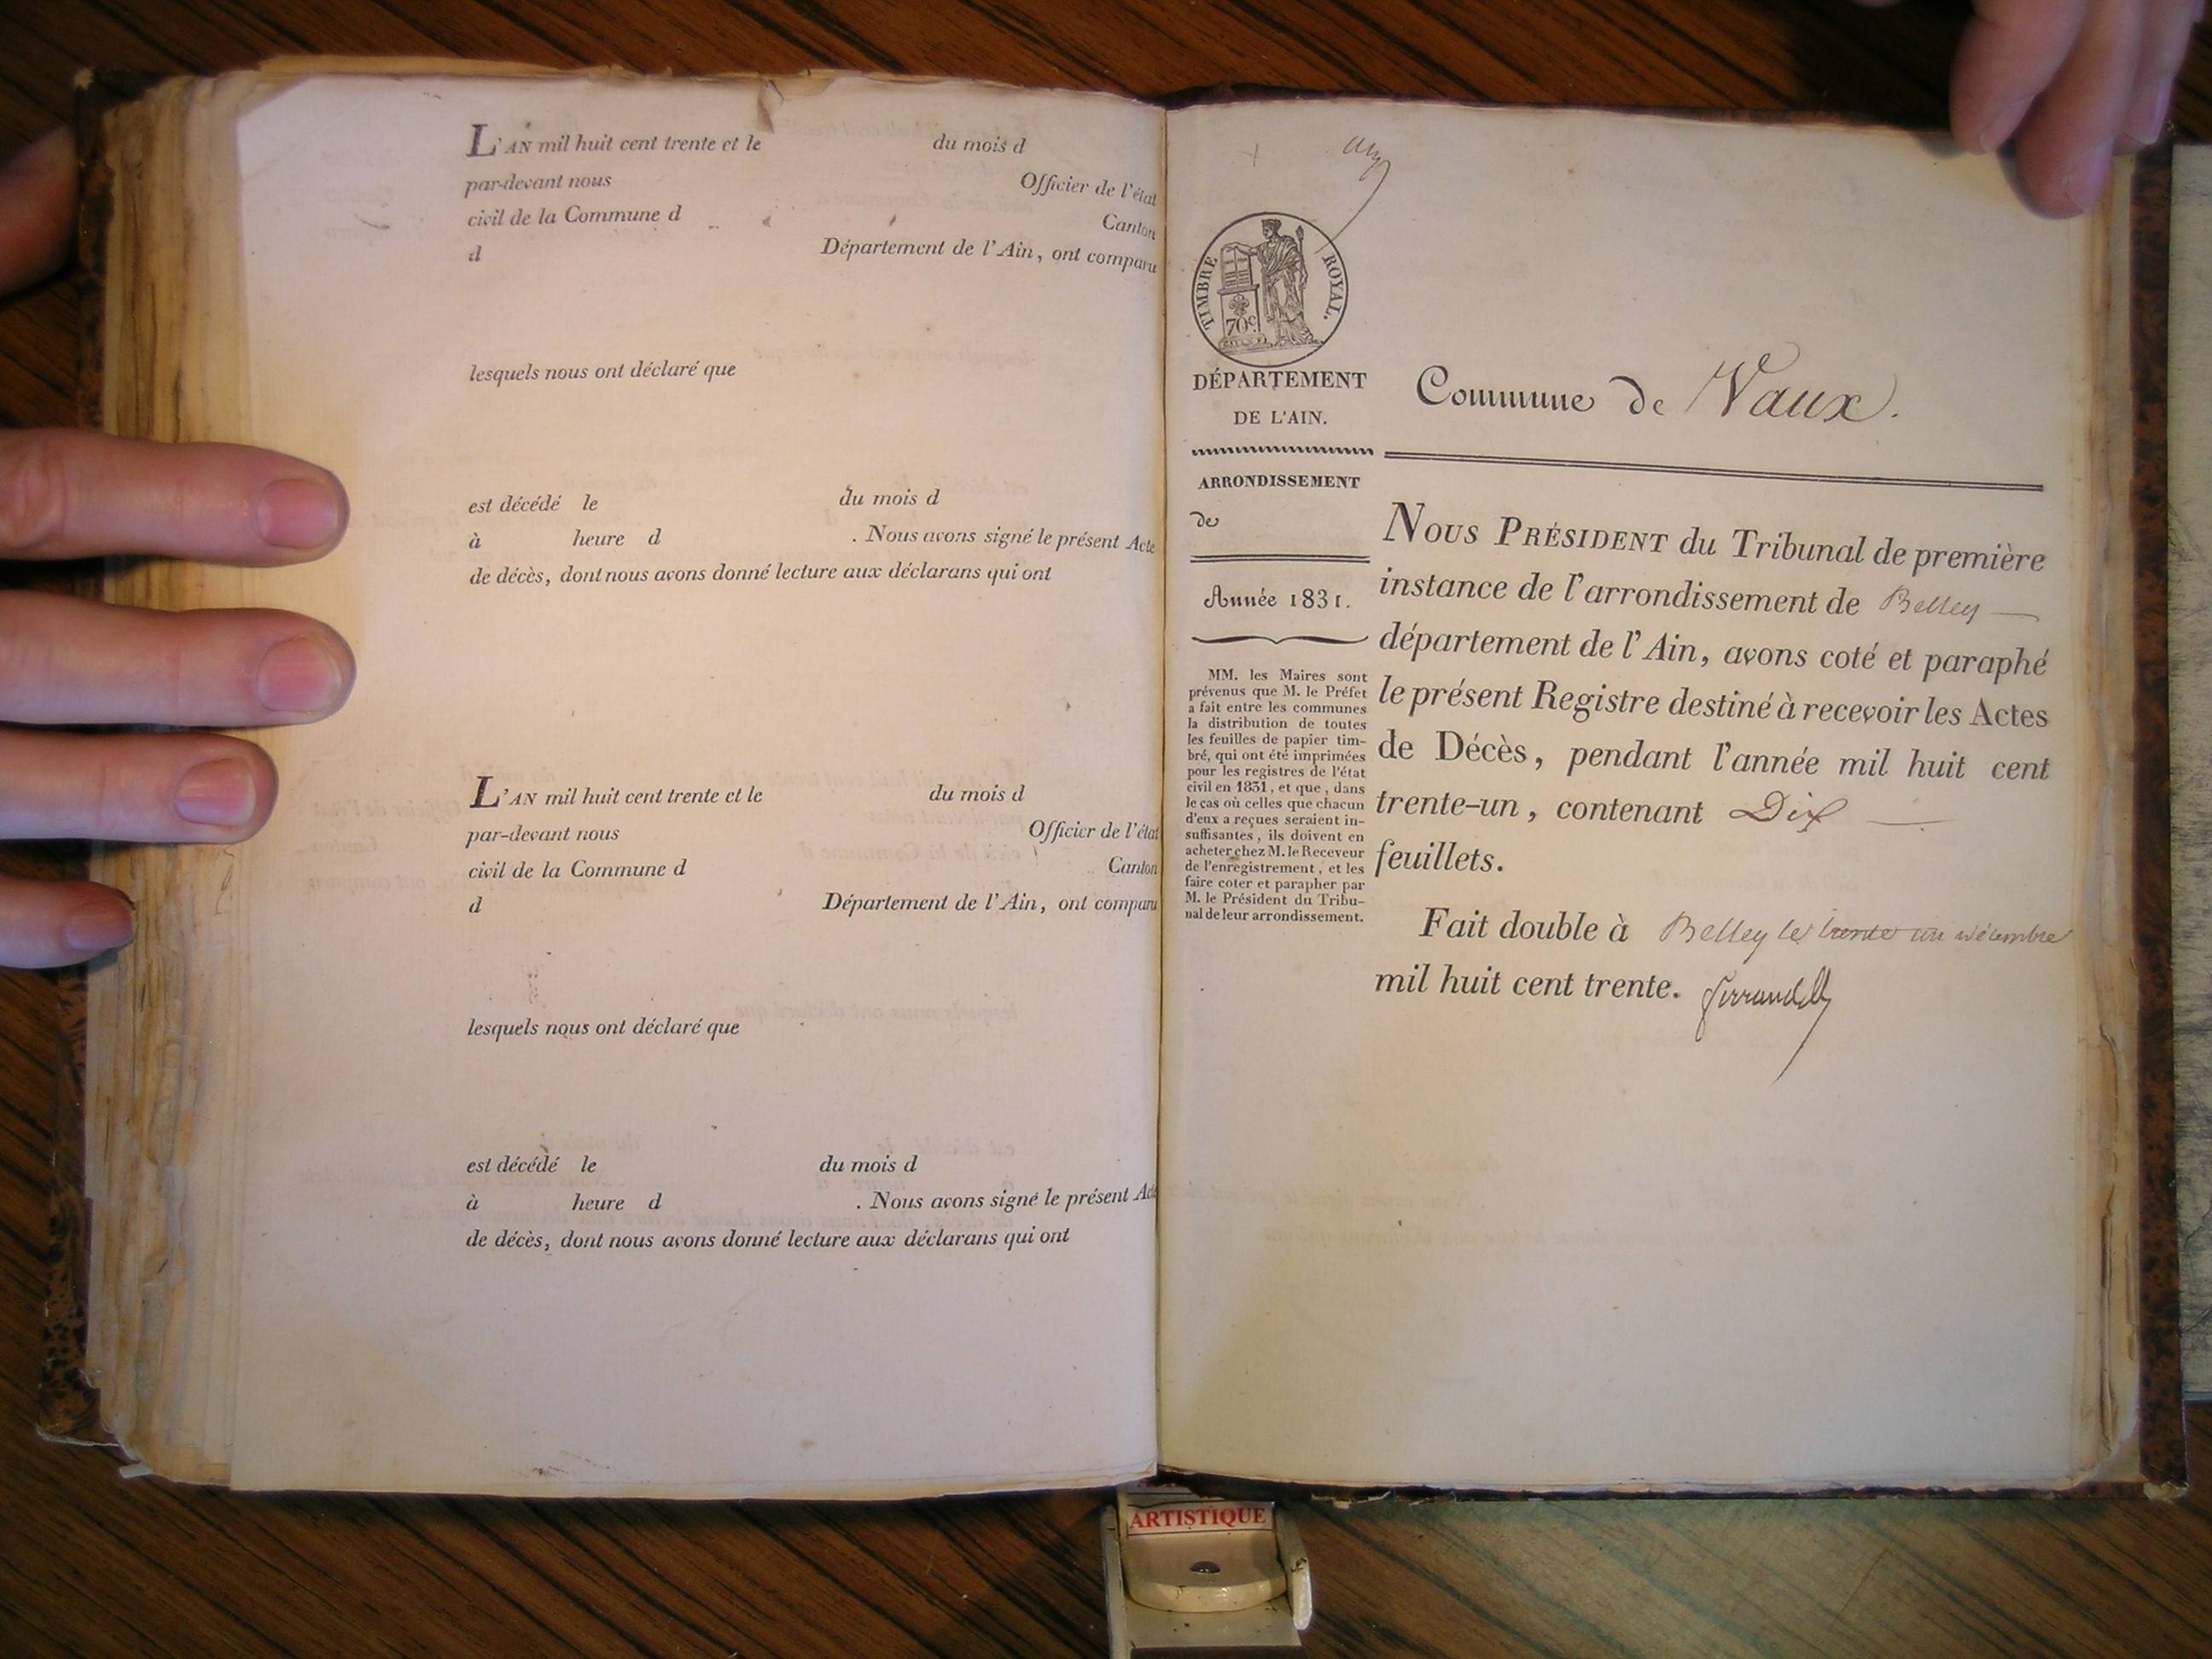 L'AN mil huit cent trente et le du mois d
par-devant nous Officier de l'état
civil de la Commune d Canton
d Département de l'Ain, ont comparu
lesquels nous ont déclaré que
est décédé le du mois d
à heure d . Nous avons signé le présent Acte
de décès, dont nous avons donné lecture aux déclarans qui ont
L'AN mil huit cent trente et le du mois d
par-devant nous Officier de l'état
civil de la Commune d Canton
d Département de l'Ain, ont comparu
lesquels nous ont déclaré que
est décédé le du mois d
à heure d . Nous avons signé le présent Acte
de décès, dont nous avons donné lecture aux déclarans qui ont
TIMBRE ROYAL.
70c.
DÉPARTEMENT
DE L'AIN.
ARRONDISSEMENT
de
Année 1831.
MM. les Maires sont
prévenus que M. le Préfet
a fait entre les communes
la distribution de toutes
les feuilles de papier tim-
bré, qui ont été imprimées
pour les registres de l'état
civil en 1831, et que, dans
le cas où celles que chacun
d'eux a reçues seraient in-
suffisantes, ils doivent en
acheter chez M. le Receveur
de l'enregistrement, et les
faire coter et parapher par
M. le Président du Tribu-
nal de leur arrondissement.
Commune de Vaux.
NOUS PRÉSIDENT du Tribunal de première
instance de l'arrondissement de Belley
département de l'Ain, avons coté et paraphé
le présent Registre destiné à recevoir les Actes
de Décès, pendant l'année mil huit cent
trente-un, contenant Dix
feuillets.
Fait double à Belley le trente un décembre
mil huit cent trente.
ARTISTIQUE